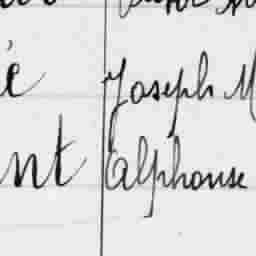 é Joseph M
nt Alphonse